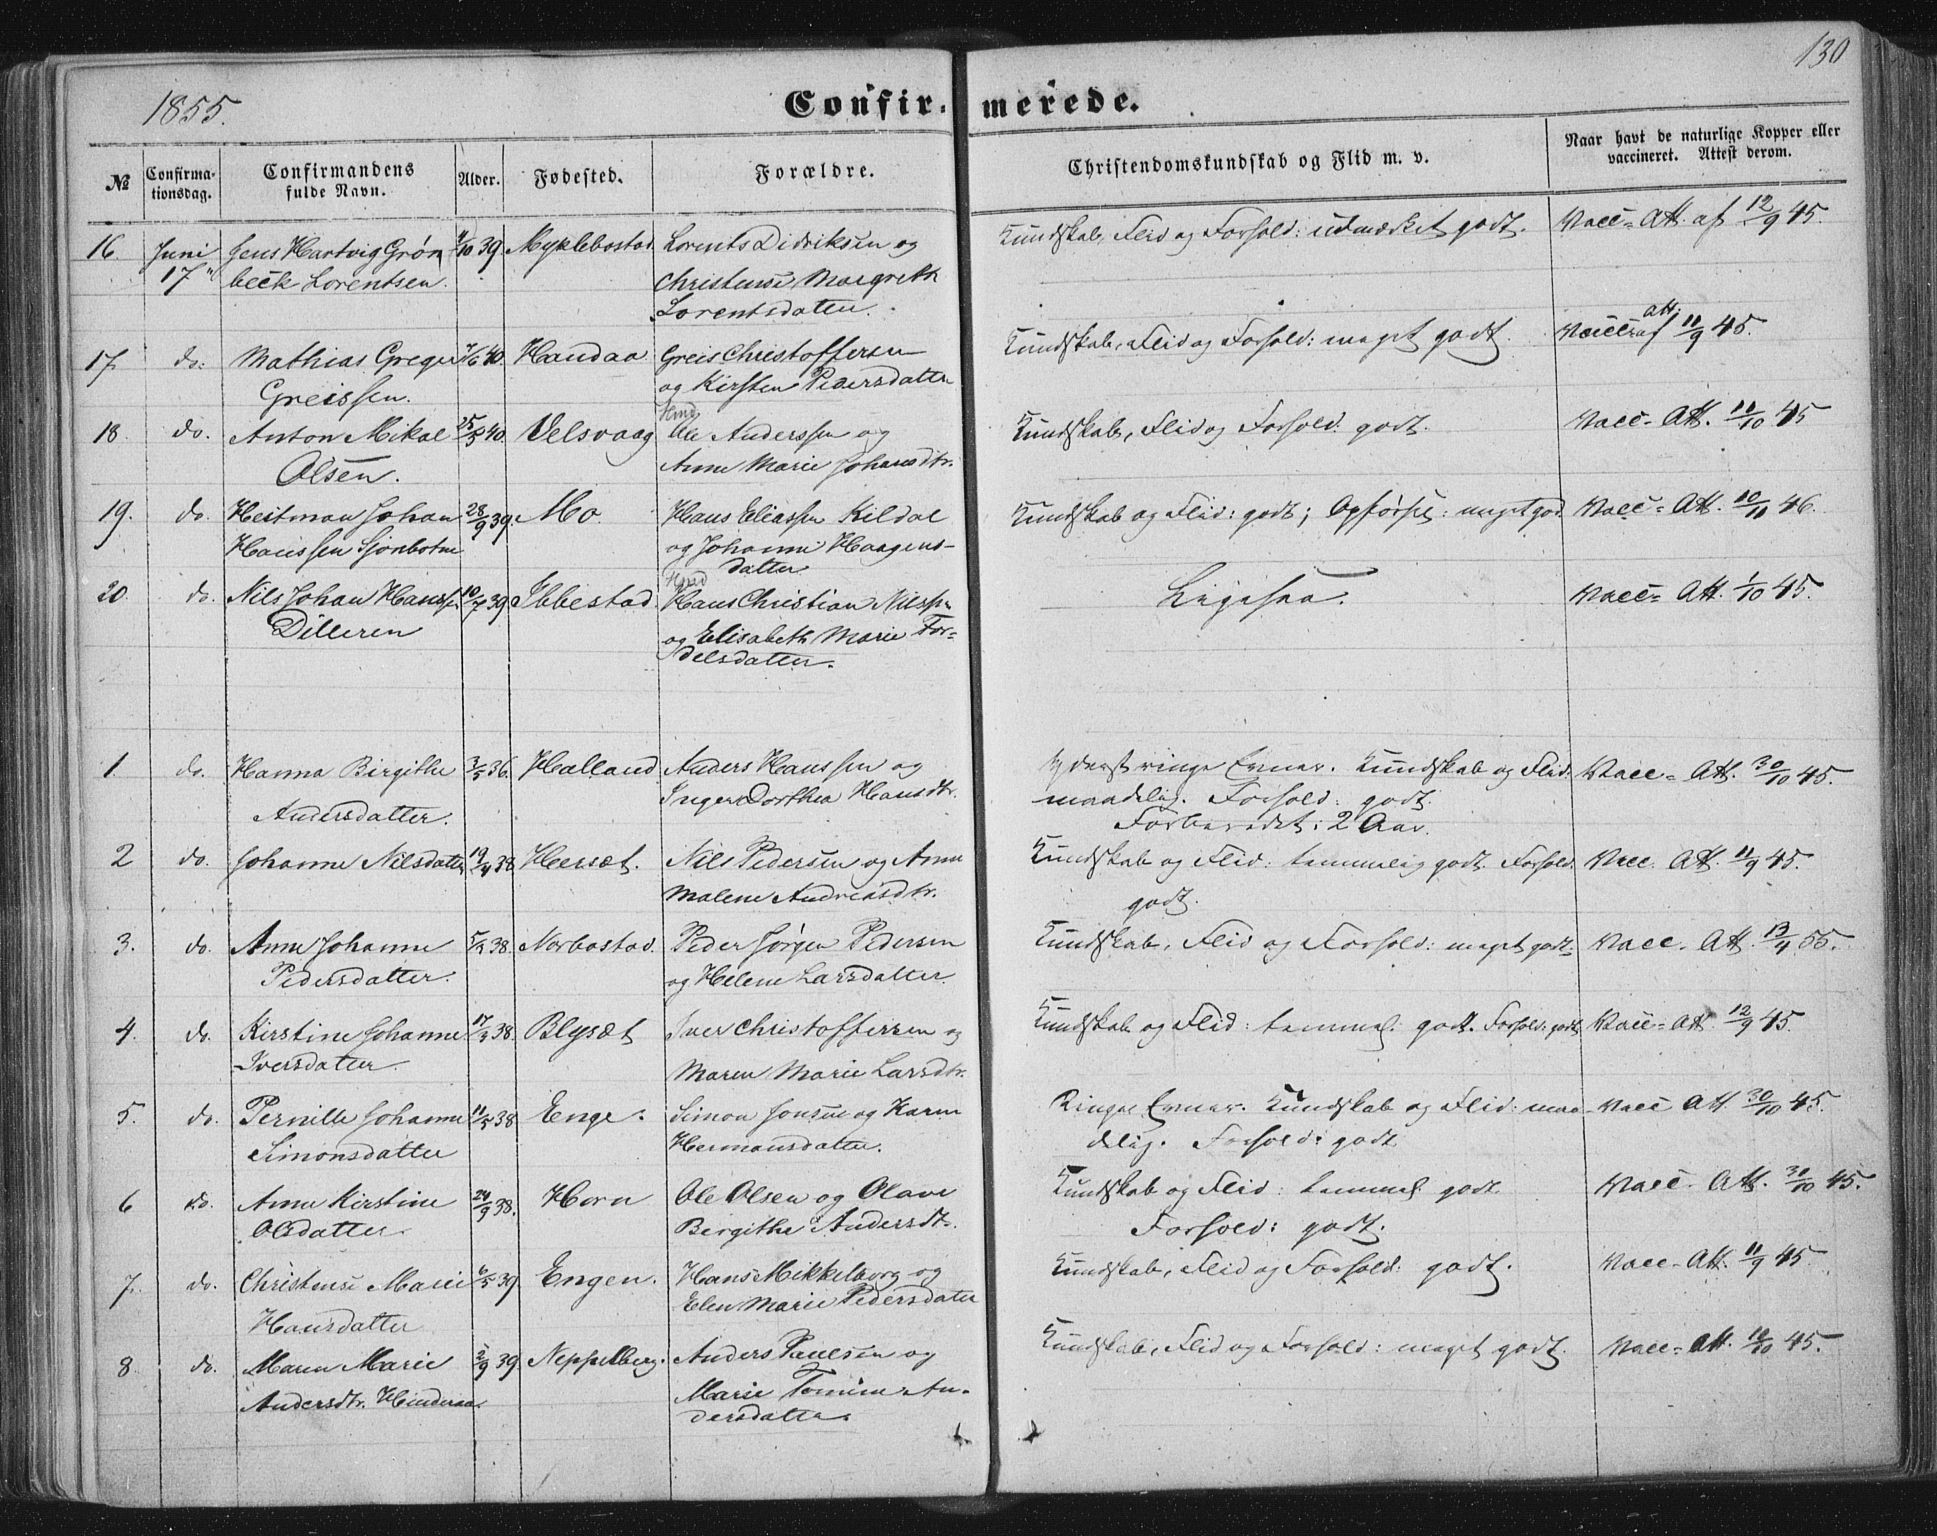 130
1855.
Confir- merede.
№ Confirma-tionsdag. Confirmandens fulde Navn. Alder. Fødested. Forældre. Christendomskundskab og Flid m. v. Naar havt de naturlige Kopper eller vaccineret. Attest derom.
16 Juni Jens Hartvig Grøn /10 39. Myklebostad. Lorents Didriksen og Kundskab, Flid og Forhold: udmærket godt. Vacc= Att. af 12/9 45.
17" beck Lorentsen. Christense Margreth
Lorentsdatter.
17 do. Mathias Greger /6 40. Handaa Greis Christoffersen Kundskab, Flid og Forhold: meget godt. Vacc= Att. af 11/9 45.
Greissen. og Kirsten Pedersdatter
18. do. Anton Mikal 25/5 40. Velsvaag Hmd Ole Anderssen og Kundskab, Flid og Forhold: godt. Vacc- Att. 11/10 45
Olsen. Anne Marie Johansdtr.
19. do. Heitman Johan 28/9 39. Mo Hans Eliassen Kildal Kundskab og Flid: godt; Opførsel: meget god Vacc= Att. 10/11 46.
Hanssen Sjonbotn og Johanna Haagens-
datter
20 do. Nils Johan Hanss. 10/7 39. Ibbestad Hmd Hans Christian Nilss. Ligesaa. Vacc= Att. 1/10 45.
Dilleren og Elisabeth Marie For-
delsdatter.
1. do. Hanna Birgithe 3/5 36. Halland Anders Hanssen og Yderst ringe Evner. Kundskab og Flid: Vacc- Att. 30/10 45.
Andersdatter. Inger Dorthea Hansdtr. maadelig. Forhold: godt.
Forberedet i 2 Aar.
2 do. Johanne Nilsdatter 19/4 38. Hersæt. Nils Pedersen og Anne Kundskab og Flid: temmelig godt. Forhold: Vacc. Att. 11/9 45.
Malene Andreasdtr. godt.
3. do. Anne Johanne 5/2 38. Norbostad. Peder Jørgen Pedersen Kundskab, Flid og Forhold: meget godt. Vacc. Att. 13/4 55.
Pedersdatter. og Helene Larsdatter.
4. do. Kirstine Johanne 17/3 38. Blysæt Iver Christoffersen og Kundskab og Flid: temmel. godt. Forhold: godt Vacc- Att. 12/9 45.
Iversdatter. Maren Marie Larsdtr.
5. do. Pernille Johanne 11/5 38 Enge. Simon Jonsen og Karen Ringe Evner. Kundskab og Flid: maa- Vacc Att 30/10 45.
Simonsdatter Hermansdatter. delig. Forhold: godt
6 do. Anne Kirstine 24/9 38. Horn Ole Olsen og Olava Kundskab og Flid: temmel. godt Vacc. Att. 30/10 45.
Olsdatter Birgithe Andersdt. Forhold: godt.
7. do. Christense Marie 6/5 39 Engen. Hans Mikkelborg og Kundskab, Flid og Forhold: godt. Vacc- Att. 11/9 45
Hansdatter Elen Marie Pedersdatter
8 do. Maren Marie 2/9 39 Neppelberg. Anders Paulsen og Kundskab, Flid og Forhold: meget godt. Vacc= Att. /10 45.
Andersdtr. Hinderaa. Marie Tomine An-
dersdatter